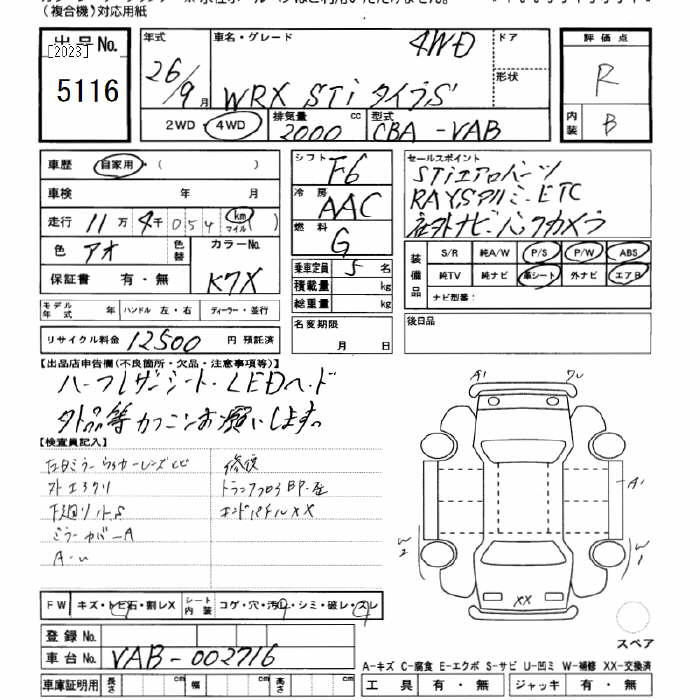 (複合機)対応用紙
出品No.
[2023]
5116
年式
26/9月
車名・グレード
4WD
WRX STi タイプS
ドア
形状
2WD・4WD
排気量 2000 cc
型式 CBA-VAB
評価点
R
内装
B
車歴 自家用・( )
車検 年 月
走行 11万4千054 km マイル ( )
色 アオ
色替
カラーNo. K7X
保証書 有・無
シフト F6
冷房 AAC
燃料 G
乗車定員 5 名
積載量 kg
総重量 kg
セールスポイント
STiエアロパーツ
RAYSアルミ・ETC
社外ナビ・バックカメラ
装備品
S/R 純A/W P/S P/W ABS
純TV 純ナビ 革シート 外ナビ エアB
ナビ型番:
モデル年式 年 ハンドル 左・右 ディーラー・並行
名変期限
月 日
後日品
リサイクル料金 12500 円 預託済
【出品店申告欄(不良箇所・欠品・注意事項等)】
ハーフレザーシート・LEDヘッド
外品等カクニンお願いします。
【検査員記入】
修復
ミラーカバーA
A-U
エンドパネルXX
A1
W2
A1
W1
XX
FW キズ・トビ石・割レX
シート内装 コゲ・穴・汚レ・シミ・破レ・スレ
スペア
登録No.
車台No. VAB-002716
A-キズ C-腐食 E-エクボ S-サビ U-凹ミ W-補修 XX-交換済
車庫証明用 長さ cm 幅 cm 高さ cm
工具 有・無 ジャッキ 有・無